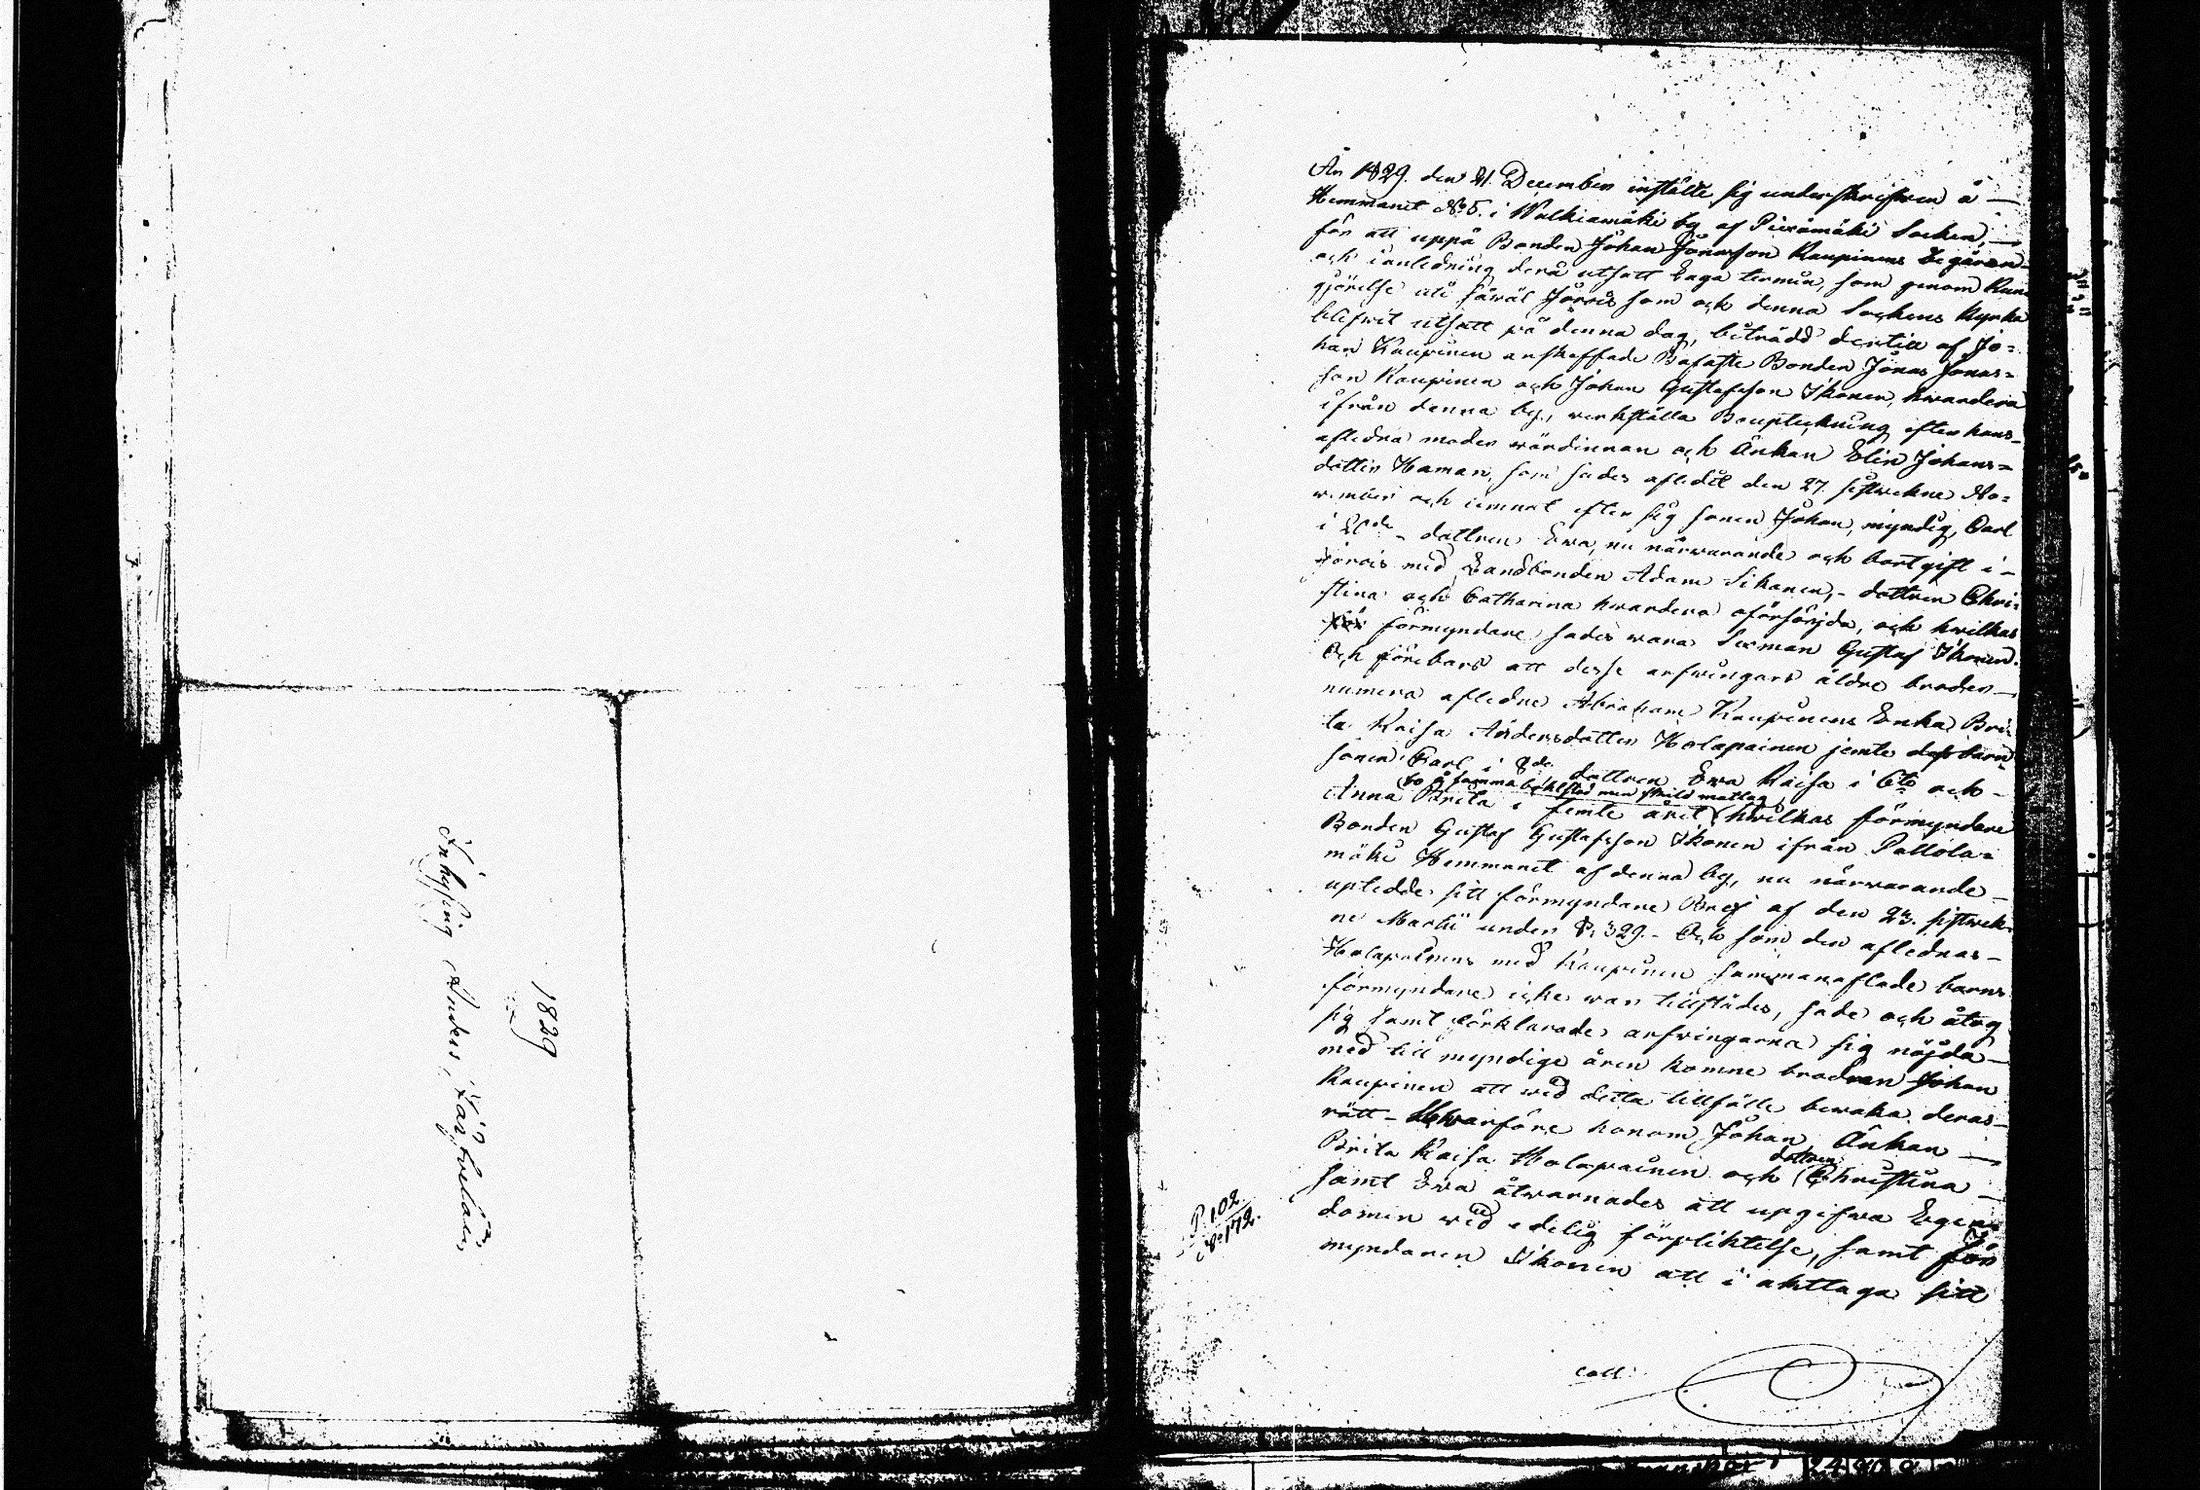 1829
Inhysing Anders Kärkkäin,
År 1829. den 21. December instälte sig underskrifwen å
Hemmanet No 5. i Walkiamäki by af Piexämäki Socken,
för att uppå Bonden Johan Jönasson Kaupinens begäran
och i anledning derå utsatt Laga termin, som genom Kun-
gjörelse uti såwäl Jorois som och denna Sockens Kyrka
blifwit utsatt på denna dag, biträdd dertill af Jo=
han Kaupinen anskaffade Bofaste Bonden Jönas Jonas=
son Kaupinen och Johan Gustafsson Ikonen, hwardera
ifrån denna by, werkställa Bouptekning efter hans
afledna moder wärdinnan och Änkan Elin Johans=
dotter Haman, som sades aflidit den 27. sistwekne No=
wember och lemnat efter sig sonen Johan, myndig, Carl
i 20de - dottren Ewa, nu närwarande och bortgift i
Jorois med Landbonden Adam Sikanen, - dottren Chri=
stina och Catharina hwardera oförsörjda, och hwilkas
förmyndare sades wara Sexman Gustaf Ikonen.
Och förebars att desse arfwingars äldre broder
numera aflidne Abraham Kaupinens Enka Bri=
ta Kaisa Andersdotter Holapainen jemte dess barn
sonen Carl i 8de dottren Ewa Kaisa i 6te och
bo å samma bohlstad men skild matlag
Anna Brita i femte året hwilkas förmyndare
Bonden Gustaf Gustafsson Ikonen ifrån Pallola=
mäki Hemmanet af denna by, nu närwarande
uptedde sitt förmyndare Bref af den 23. sistwek=
ne Martii under § 329. - Och som den aflednas
Holapainens med Kaupinen sammanaflade barns
förmyndare icke war tillstädes, sade och åtog
sig samt förklarade arfwingarna sig nöjda
med till myndige åren komne brodren Johan
Kaupinen att wid detta tillfälle bewaka deras
rätt - Hwarföre honom, Johan, Änkan
Brita Kaisa Holapainen och dottren Christina
samt Ewa åtwarnades att upgifwa Egen=
domen wid edelig förpliktelse, samt för
myndaren Ikonen att i akttaga sitt
P. 102.
No 172.
coll: